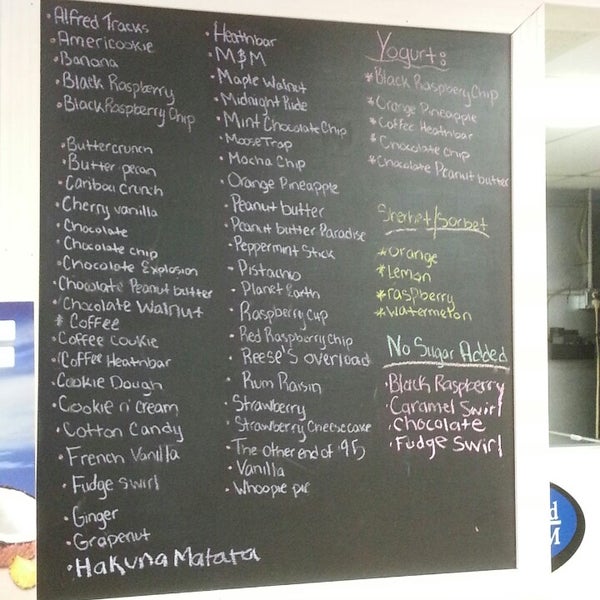 • Alfred Tracks
• Americookie
• Banana
• Black Raspberry
• Black Raspberry Chip
• Buttercrunch
• Butter pecan
• Caribou Crunch
• Cherry vanilla
• Chocolate
• Chocolate chip
• Chocolate Explosion
• Chocolate Peanut butter
• Chocolate Walnut
* Coffee
• Coffee cookie
• Coffee Heathbar
• Cookie Dough
• Cookie n' cream
• Cotton Candy
• French Vanilla
• Fudge swirl
• Ginger
• Grapenut
• Hakuna Matata
• Heathbar
• M&M
• Maple Walnut
• Midnight Ride
• Mint Chocolate Chip
• Moose Trap
• Mocha Chip
• Orange Pineapple
• Peanut butter
• Peanut butter Paradise
• Peppermint Stick
• Pistachio
• Planet Earth
• Raspberry cup
• Red Raspberry chip
• Reese's overload
• Rum Raisin
• Strawberry
• Strawberry Cheesecake
• The other end of 95
• Vanilla
• Whoopie pie
Yogurt:
* Black Raspbery Chip
* Orange Pineapple
* Coffee Heathbar
* Chocolate chip
* Chocolate Peanut butter
Sherbet/Sorbet
* Orange
* Lemon
* raspberry
* Watermelon
No Sugar Added
• Black Raspberry
• Caramel Swirl
• Chocolate
• Fudge Swirl